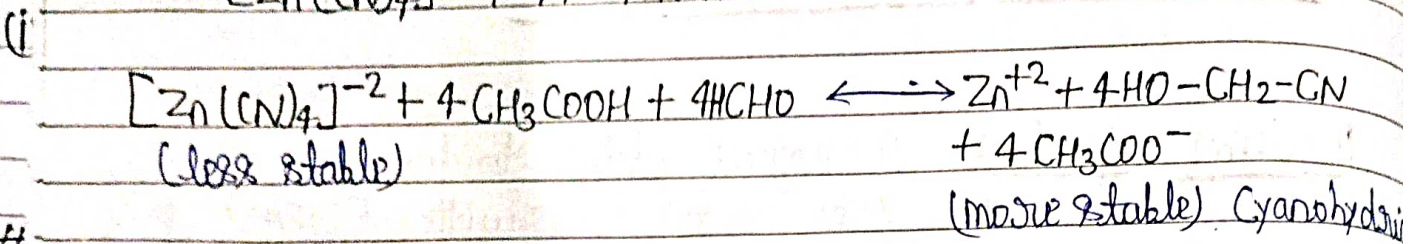 (i
[Zn(CN)4]-2 + 4CH3COOH + 4HCHO ⟷ Zn+2 + 4HO-CH2-CN
+ 4CH3COO-
(less stable)
(more stable) Cyanohydri